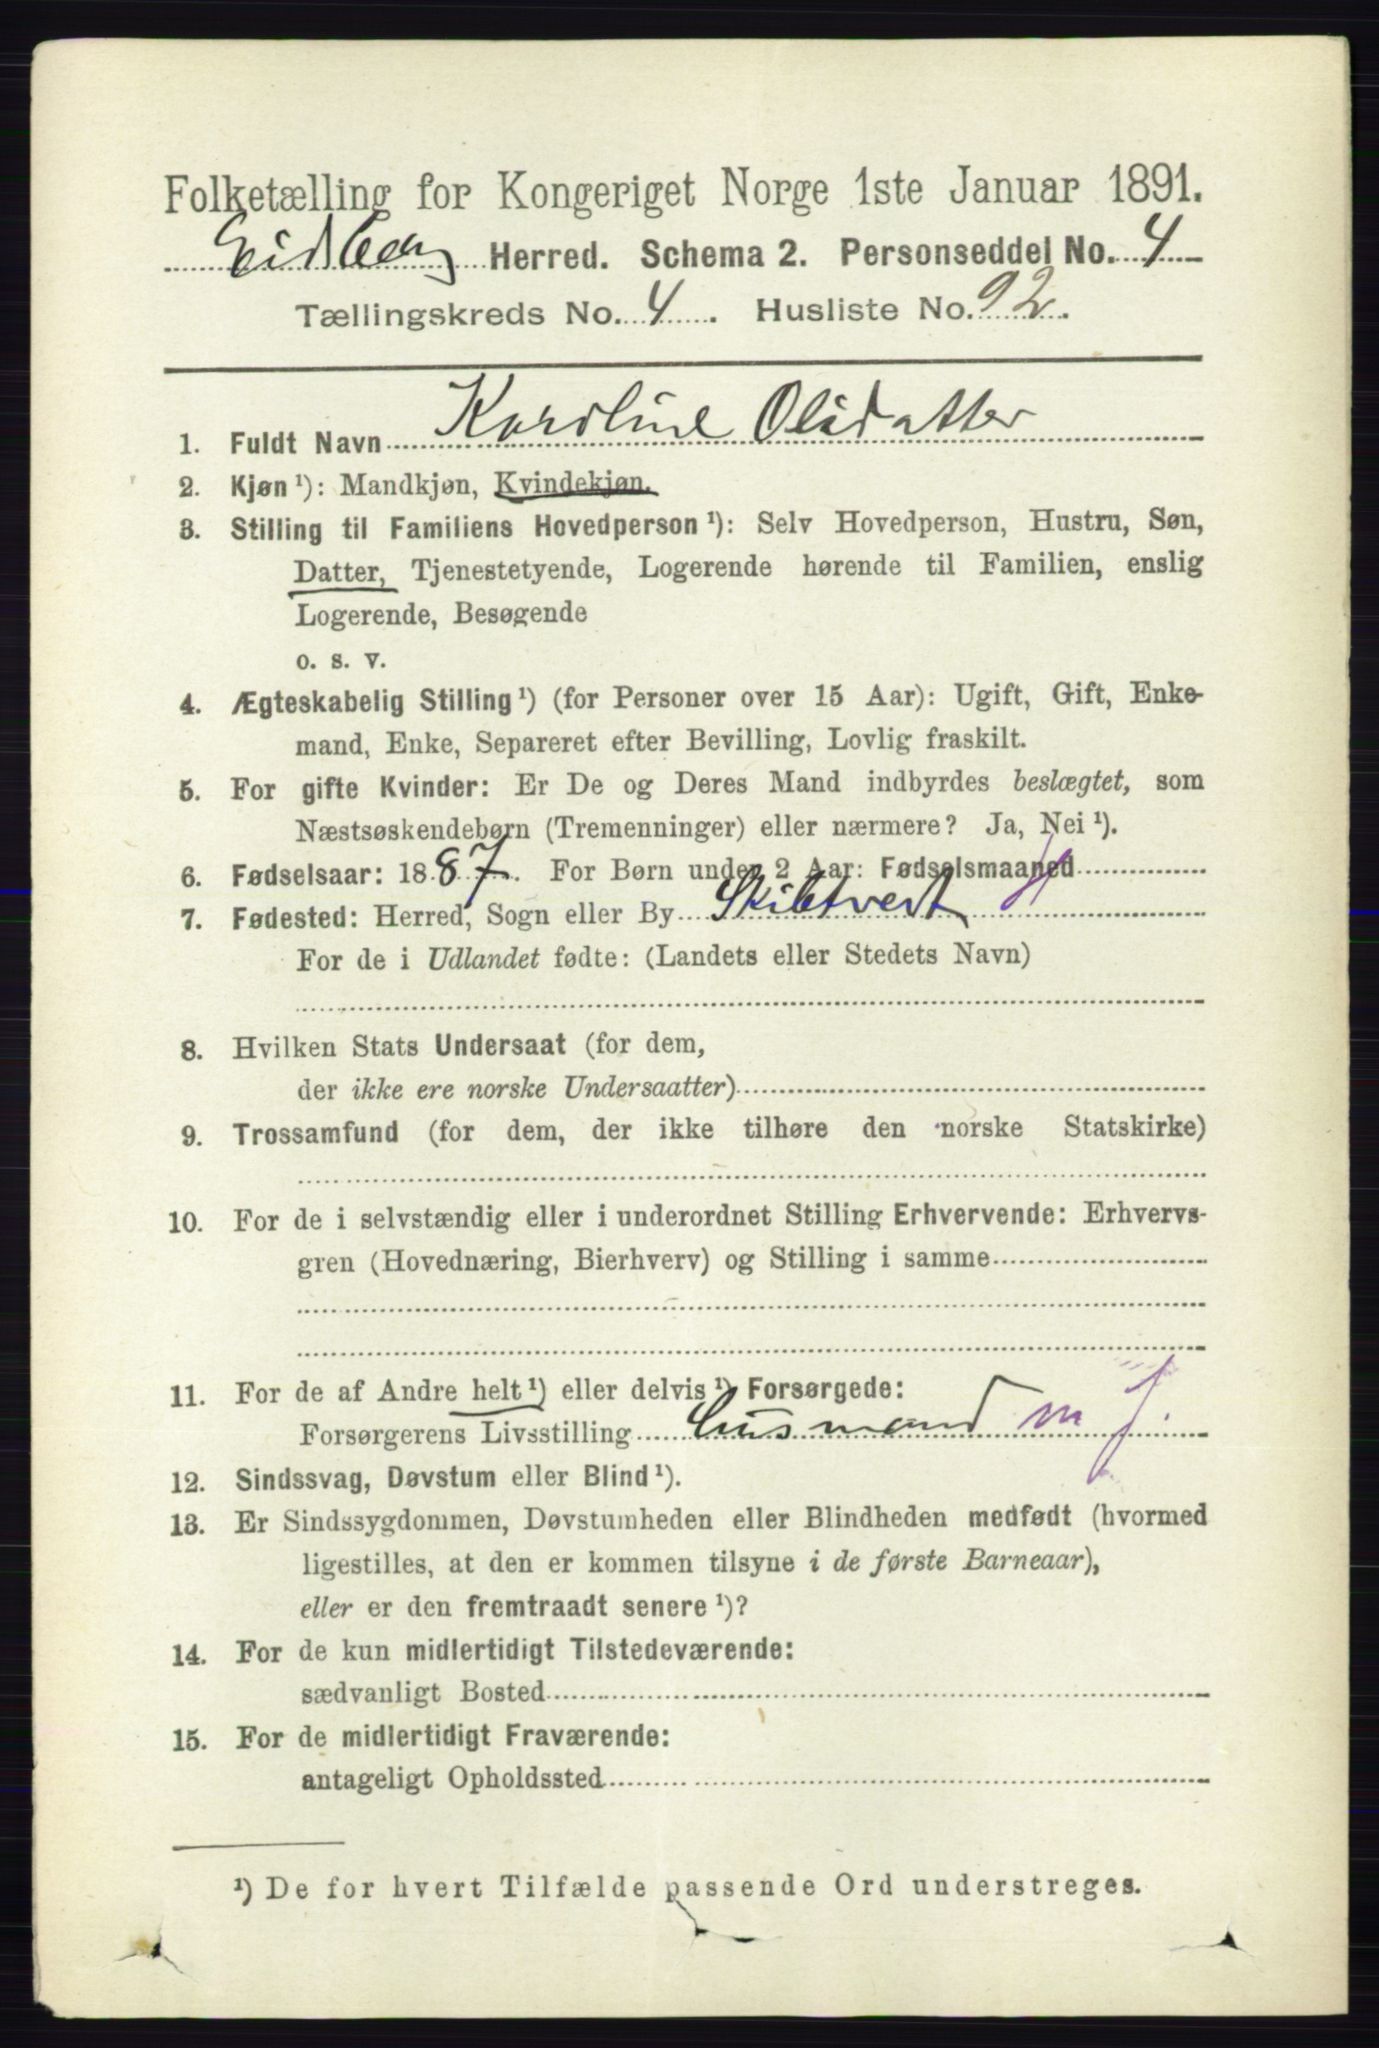 Folketælling for Kongeriget Norge 1ste Januar 1891.
Eidsberg Herred. Schema 2. Personseddel No. 4
Tællingskreds No. 4. Husliste No. 92.
1. Fuldt Navn Karoline Olsdatter
2. Kjøn ¹): Mandkjøn, Kvindekjøn.
3. Stilling til Familiens Hovedperson ¹): Selv Hovedperson, Hustru, Søn,
Datter, Tjenestetyende, Logerende hørende til Familien, enslig
Logerende, Besøgende
o. s. v.
4. Ægteskabelig Stilling ¹) (for Personer over 15 Aar): Ugift, Gift, Enke-
mand, Enke, Separeret efter Bevilling, Lovlig fraskilt.
5. For gifte Kvinder: Er De og Deres Mand indbyrdes beslægtet, som
Næstsøskendebørn (Tremenninger) eller nærmere? Ja, Nei ¹).
6. Fødselsaar: 1887. For Børn under 2 Aar: Fødselsmaaned
7. Fødested: Herred, Sogn eller By Skibtvert
For de i Udlandet fødte: (Landets eller Stedets Navn)
8. Hvilken Stats Undersaat (for dem,
der ikke ere norske Undersaatter)
9. Trossamfund (for dem, der ikke tilhøre den norske Statskirke)
10. For de i selvstændig eller i underordnet Stilling Erhvervende: Erhvervs-
gren (Hovednæring, Bierhverv) og Stilling i samme
11. For de af Andre helt ¹) eller delvis ¹) Forsørgede:
Forsørgerens Livsstilling Husmand m j.
12. Sindssvag, Døvstum eller Blind ¹).
13. Er Sindssygdommen, Døvstumheden eller Blindheden medfødt (hvormed
ligestilles, at den er kommen tilsyne i de første Barneaar),
eller er den fremtraadt senere ¹)?
14. For de kun midlertidigt Tilstedeværende:
sædvanligt Bosted
15. For de midlertidigt Fraværende:
antageligt Opholdssted
¹) De for hvert Tilfælde passende Ord understreges.